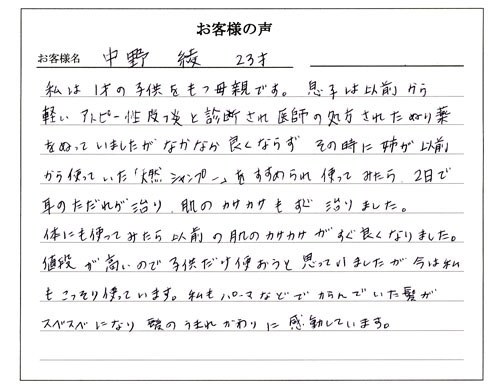 お客様の声
お客様名 中野 綾 23才
私は1才の子供をもつ母親です。 息子は以前から
軽いアトピー性皮フ炎と診断され医師の処方されたぬり薬
をぬっていましたがなかなか良くならず その時に姉が以前
から使っていた「燃シャンプー」をすすめられ使ってみたら、2日で
耳のただれが治り、肌のカサカサもすぐ治りました。
体にも使ってみたら以前の肌のカサカサがすぐ良くなりました。
値段が高いので子供だけ使おうと思っていましたが今は私
もこっそり使っています。私もパーマなどでからんでいた髪が
スベスベになり 頭のうまれかわりに感動しています。